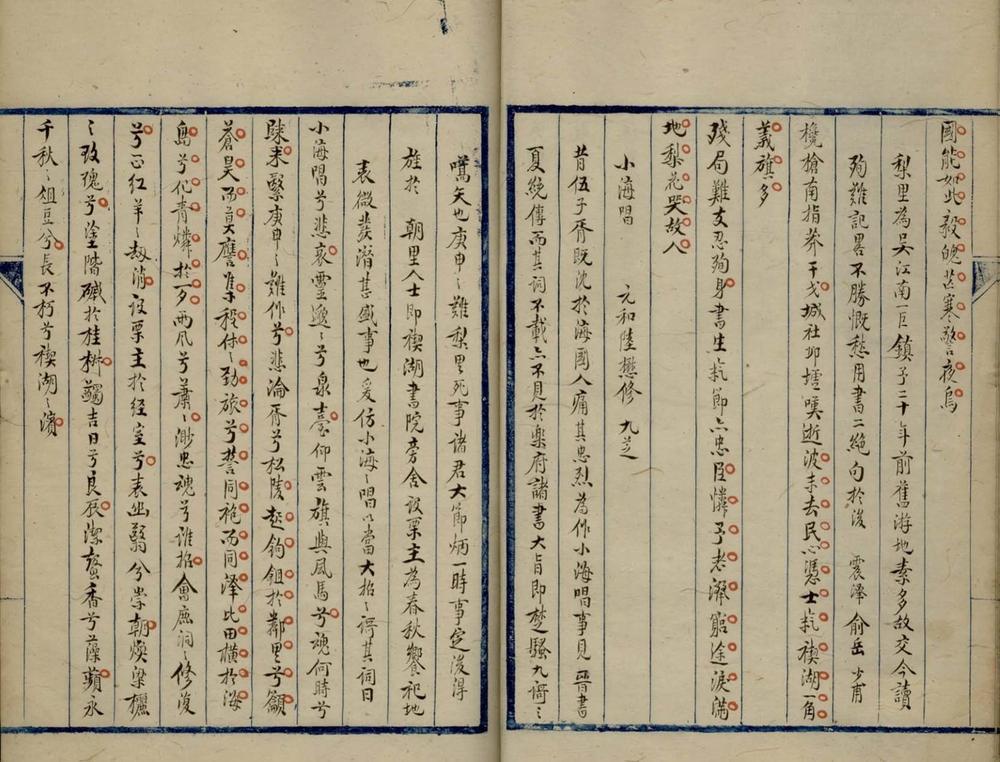 國能如此毅魄苦寒警夜烏
梨里為吳江南一巨鎮予二十年前舊游地素多故交今讀
殉難記畧不勝慨愁用書二絕句於後 震澤俞岳少甫
欃槍南指莽干戈城社邱墟嘆逝波未去民心憑士氣禊湖一角
義旗多
殘局難支忍殉身書生氣節亦忠臣憐予老淚窮途淚滿
地梨花哭故人
小海唱 元和陸懋修九芝
昔伍子胥既沈於海國人痛其忠烈為作小海唱事見晉書
夏統傳而其詞不載亦不見於樂府諸書大旨即楚騷九謌之
嚆矢也庚申之難梨里死事諸君大節炳一時事定後得
旌於 朝里人士即禊湖書院旁舍設栗主為春秋饗祀地
表微發潛甚盛事也爰仿小海之唱以當大招之謌其詞曰
小海唱兮悲哀靈邈邈兮泉臺仰雲旗與風馬兮魂何時兮
歸來緊庚申之難作兮悲淪胥兮松陵起鉏於鄰里兮籲
蒼昊而莫譍集義勇之勁旅兮誓同袍而同澤比田橫於海
島兮化青燐於一夕雨風兮蕭蕭渺忠魂兮誰招會庶洞之修復
兮正紅羊之劫消設栗主於經室兮表幽翳兮崇朝煥梁欐
之玫瑰兮塗階墄於桂椒蠲吉日兮良辰潔齍香兮藻蘋永
千秋之俎豆兮長不朽兮禊湖之濱